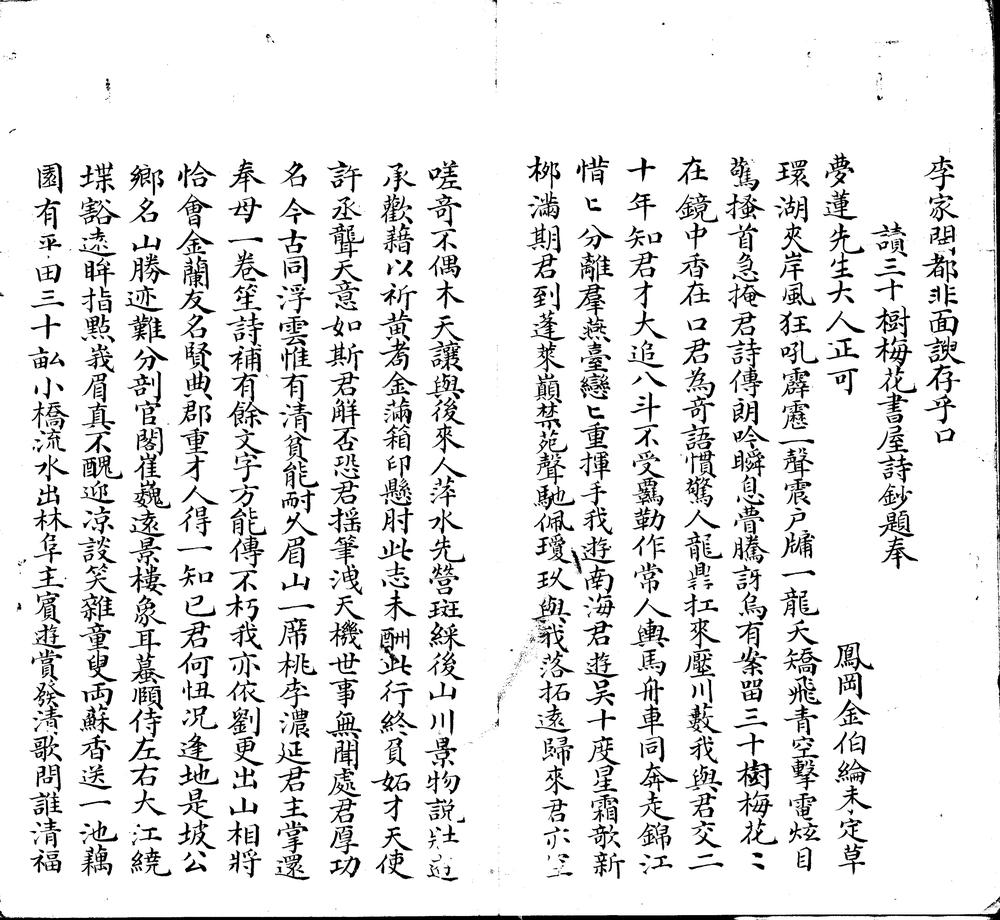 李家閎都非面諛存乎口
讀三十樹梅花書屋詩鈔題奉
夢蓮先生大人正可
鳳岡金伯綸未定草
環湖夾岸風狂吼霹靂一聲震戶牖一龍夭矯飛青空擊電炫目
驚搔首急掩君詩傳朗吟瞬息瞢騰訝烏有案留三十樹梅花〻
在鏡中香在口君為奇語慣驚人龍鼎扛來壓川藪我與君交二
十年知君才大追八斗不受羈勒作常人輿馬舟車同奔走錦江
惜匕分離羣燕臺戀匕重揮手我遊南海君遊吳十度星霜歌新
柳滿期君到蓬萊巔禁苑聲馳佩瓊玖與我落拓遠歸來君亦
嗟奇不偶木天讓與後來人萍水先營斑綵後山川景物說壯遊
承歡藉以祈黃耇金滿箱印懸肘此志未酬此行終負妬才天使
許丞聾天意如斯君解否恐君搖筆洩天機世事無聞處君厚功
名今古同浮雲惟有清貧能耐久眉山一席桃李濃延君主掌還
奉母一卷笙詩補有餘文字方能傳不朽我亦依劉更出山相將
恰會金蘭友名賢典郡重才人得一知已君何忸况逢地是坡公
鄉名山勝迹難分剖官閣崔巍遠景樓象耳蟇頤侍左右大江繞
堞豁遠眸指點峩眉真不醜迎凉談笑雜童叟雨蘇香送一池藕
園有平田三十畝小橋流水出林阜主賓遊賞發清歌問誰清福